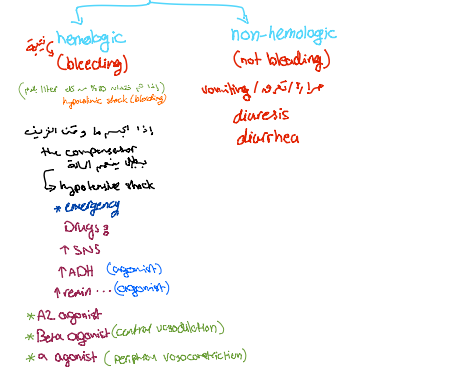 hemologic
(bleeding)
hypovolemic shock (bleeding)
إذا الجسم ما وقف النزيف
the compensator
hypotensive shock
* emergency
Drugs:
↑ SNS
↑ ADH (agonist)
↑ renin ... (agonist)
* A2 agonist
* Beta agonist (central vasodilation)
* α agonist (peripheral vasoconstriction)
non-hemologic
(not bleeding)
vomiting / تعرق /
diuresis
diarrhea